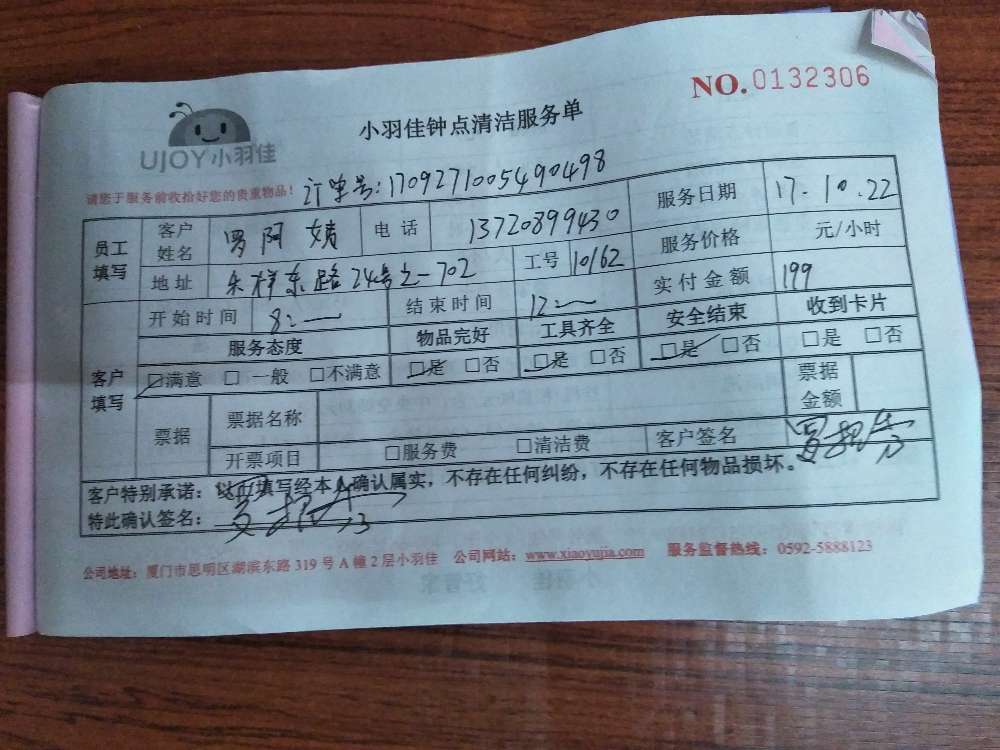 NO.0132306
UJOY小羽佳
小羽佳钟点清洁服务单
请您于服务前收拾好您的贵重物品! 订单号:1709271005490498
员工填写 客户姓名 罗阿姨 电话 13720899430 服务日期 17.10.22
地址 东路24号之一702 工号 10162 服务价格 元/小时
开始时间 8: 结束时间 12: 实付金额 199
客户填写 服务态度 物品完好 工具齐全 安全结束 收到卡片
☑满意 □一般 □不满意 ☑是 □否 ☑是 □否 ☑是 □否 □是 □否
票据 票据名称 票据金额
开票项目 □服务费 □清洁费 客户签名
客户特别承诺:以上填写经本人确认属实,不存在任何纠纷,不存在任何物品损坏。
特此确认签名:
公司地址:厦门市思明区湖滨东路319号A幢2层小羽佳 公司网站:www.xiaoyujia.com 服务监督热线:0592-5888123